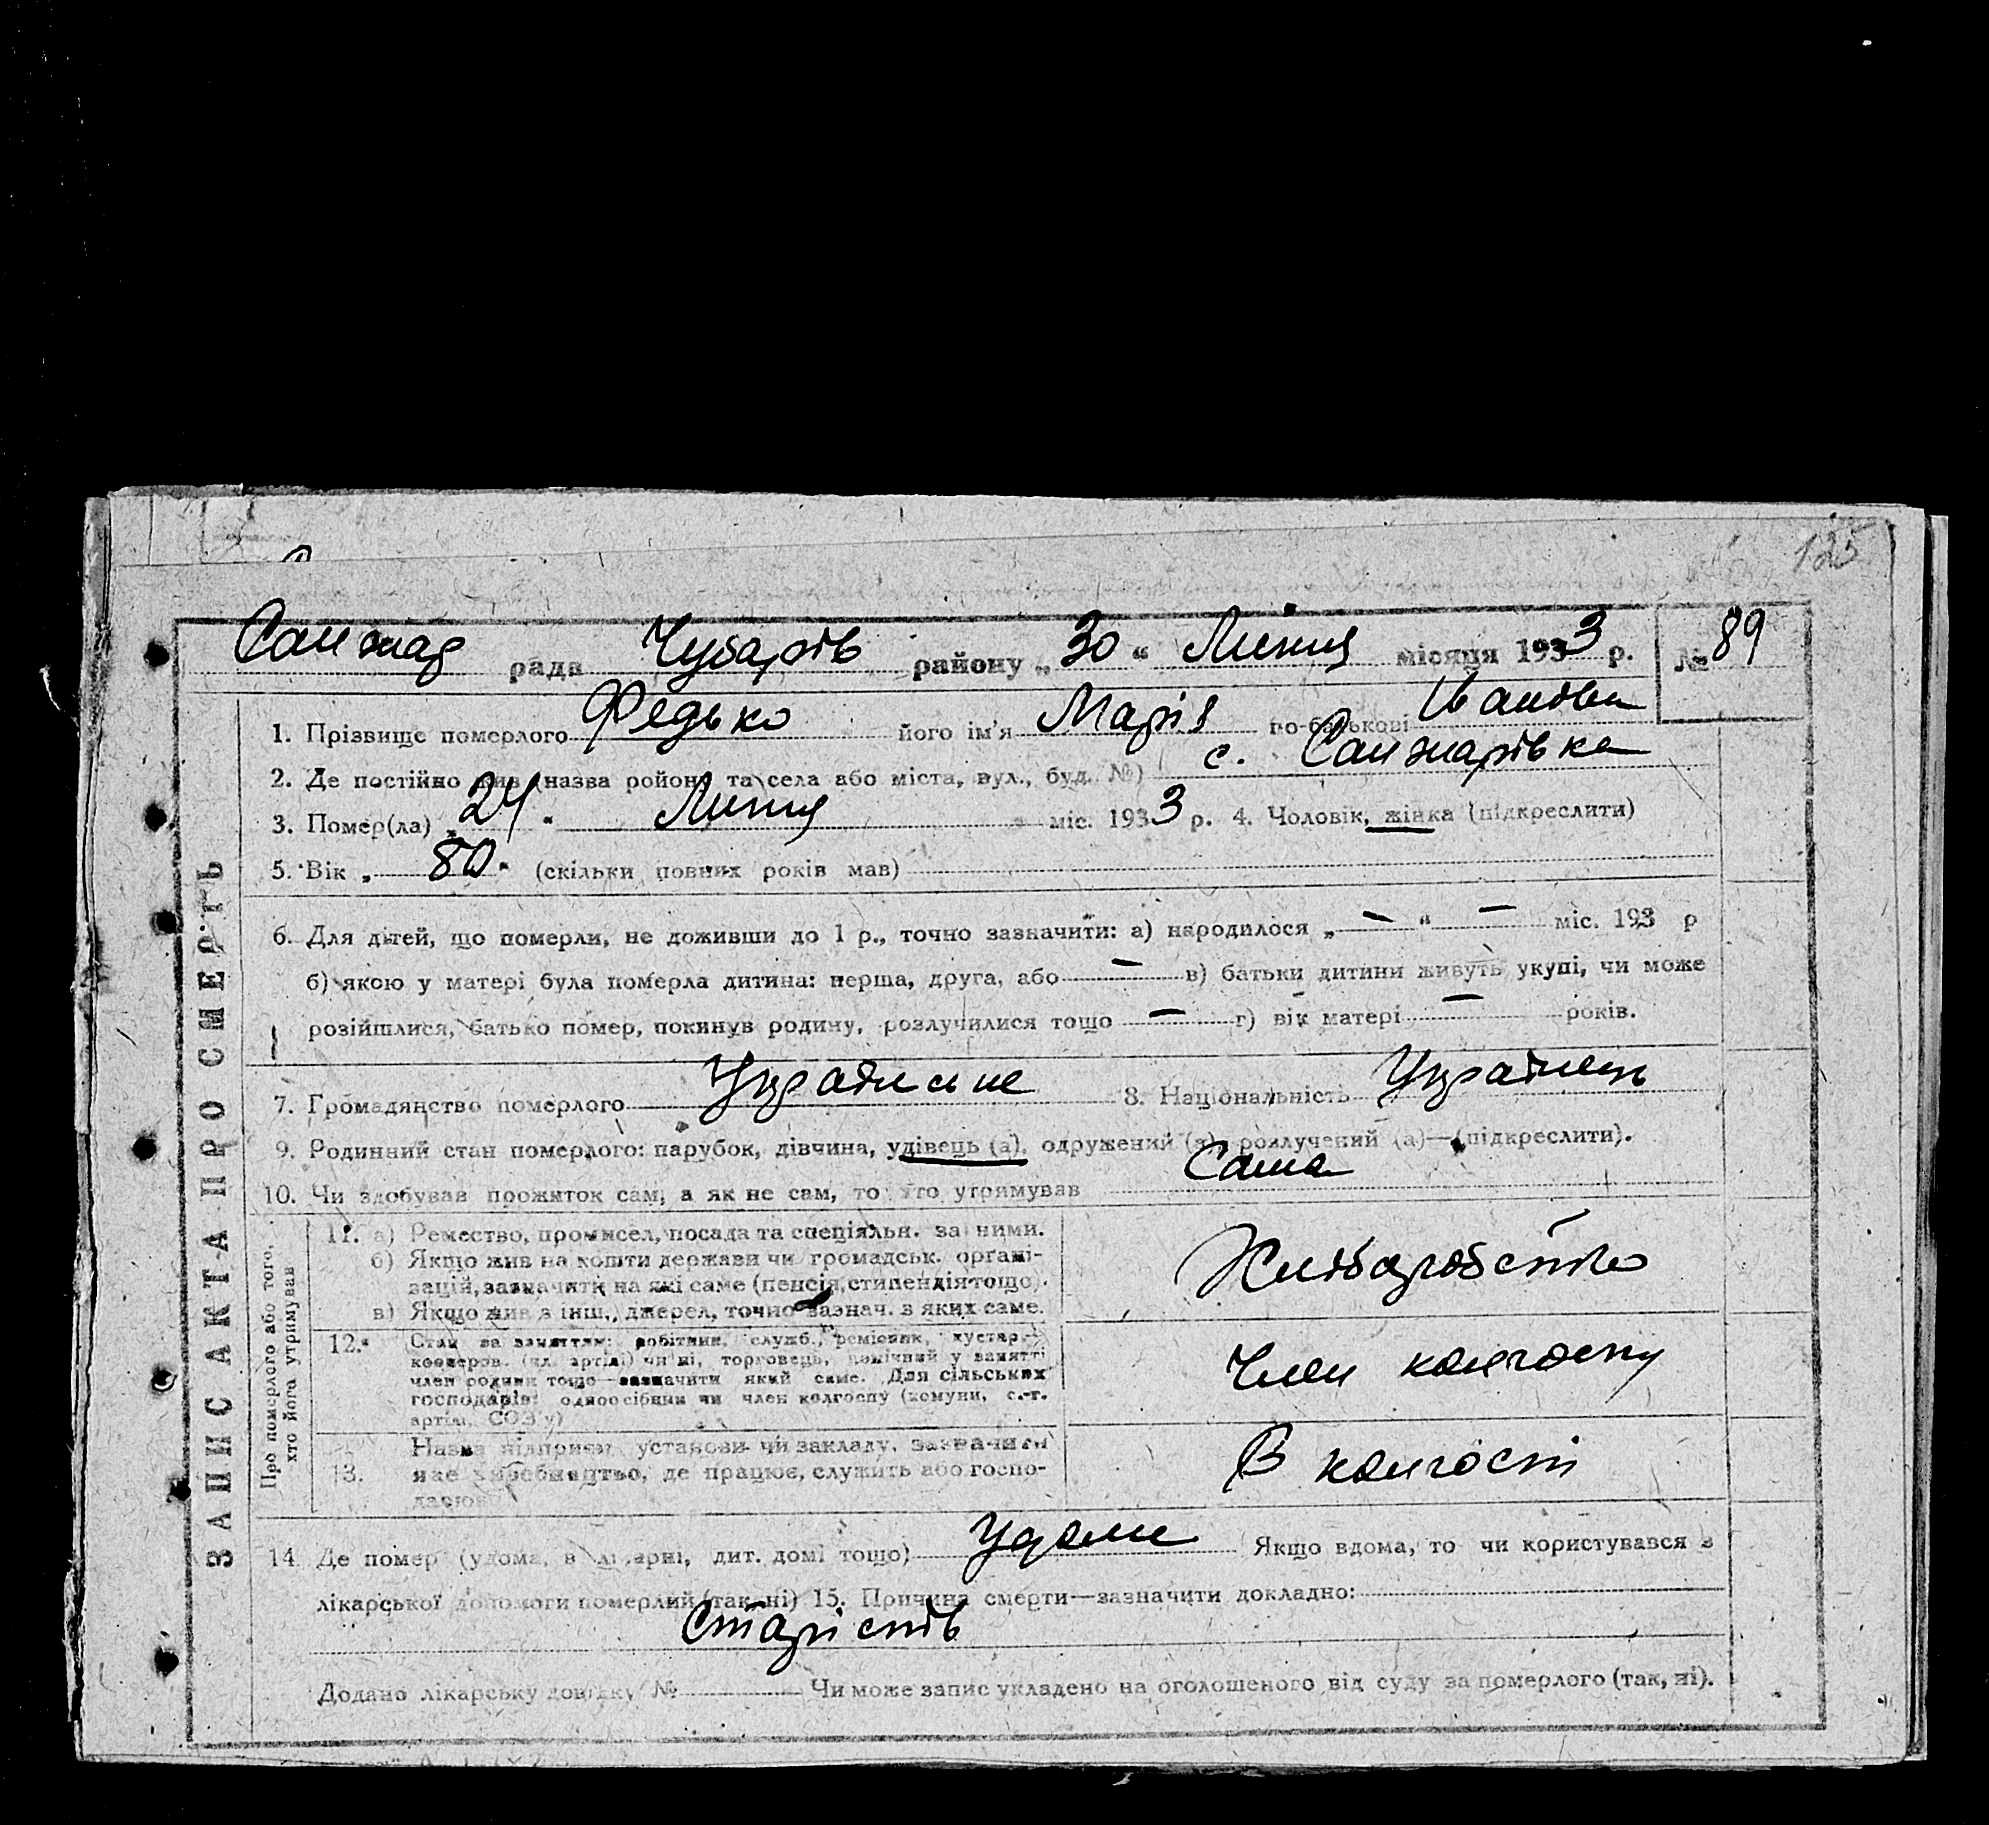 125
Санжар рада Чубарів району „30“ Липня місяця 1933 р. № 89
ЗАПИС АКТА ПРО СМЕРТЬ
1. Прізвище померлого Федько його ім'я Марія по-батькові Іванівн
2. Де постійно жив (назва району та села або міста, вул., буд. №) с. Санжарівка
3. Помер(ла) „24“ Липня міс. 1933 р. 4. Чоловік, жінка (підкреслити)
5. Вік „80“ (скільки повних років мав)
6. Для дітей, що померли, не доживши до 1 р., точно зазначити: а) народилося „—“ — міс. 193 р
б) якою у матері була померла дитина: перша, друга, або — в) батьки дитини живуть укупі, чи може
розійшлися, батько помер, покинув родину, розлучилися тощо — г) вік матері — років.
7. Громадянство померлого Українське 8. Національність Українець
9. Родинний стан померлого: парубок, дівчина, удівець (а), одружений (а), розлучений (а)—(підкреслити).
10. Чи здобував прожиток сам, а як не сам, то хто утримував Сама
Про померлого або того,
хто його утримував
11. а) Ремество, промисел, посада та спеціяльн. за ними.
б) Якщо жив на кошти держави чи громадськ. органі-
зацій, зазначити на які саме (пенсія, стипендія тощо).
в) Якщо жив з інш., джерел, точно зазнач. з яких саме.
Хліборобство
12. Стан за заняттям: робітник, служб., ремісник, кустар,
кооперов. (чл. артілі) чи ні, торговець, помічний у занятті
член родини тощо—зазначити який саме. Для сільських
господарів: одноосібник чи член колгоспу (комуни, с.-г.
артілі, СОЗ'у)
Член колгоспу
13. Назва підприєм. установи чи закладу, зазначити
яке виробництво, де працює, служить або госпо-
дарював
В колгоспі
14. Де помер (удома, в лікарні, дит. домі тощо) Удома Якщо вдома, то чи користувався з
лікарської допомоги померлий (так, ні) 15. Причина смерти—зазначити докладно:
Старість
Додано лікарську довідку № Чи може запис укладено на оголошеного від суду за померлого (так, ні).